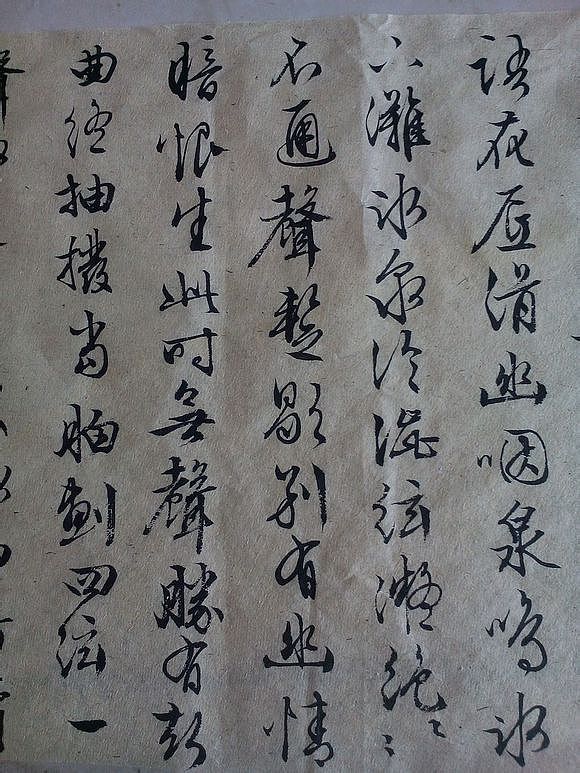 語花底滑幽咽泉鳴冰
下灘冰泉冷澀絃凝絕〻〻
不通聲暫歇別有幽情
暗恨生此時無聲勝有聲
曲終抽撥当胸劃四絃一